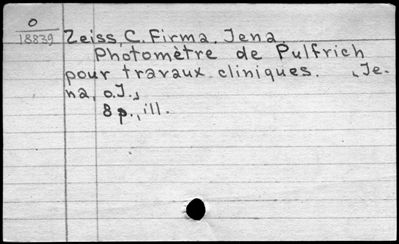 0
18839
Zeiss, C. Firma. Jena.
Photomètre de Pulfrich
pour travaux cliniques. (Je-
na, o.J.,
8 p., ill.